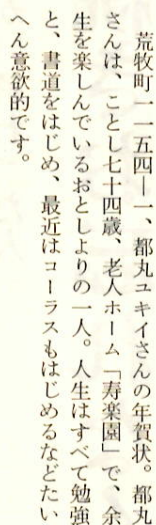 荒牧町一一五四―一、都丸ユキイさんの年賀状。都丸
さんは、ことし七十四歳、老人ホーム「寿楽園」で、余
生を楽しんでいるおとしよりの一人。人生はすべて勉強
と、書道をはじめ、最近はコーラスもはじめるなどたい
へん意欲的です。